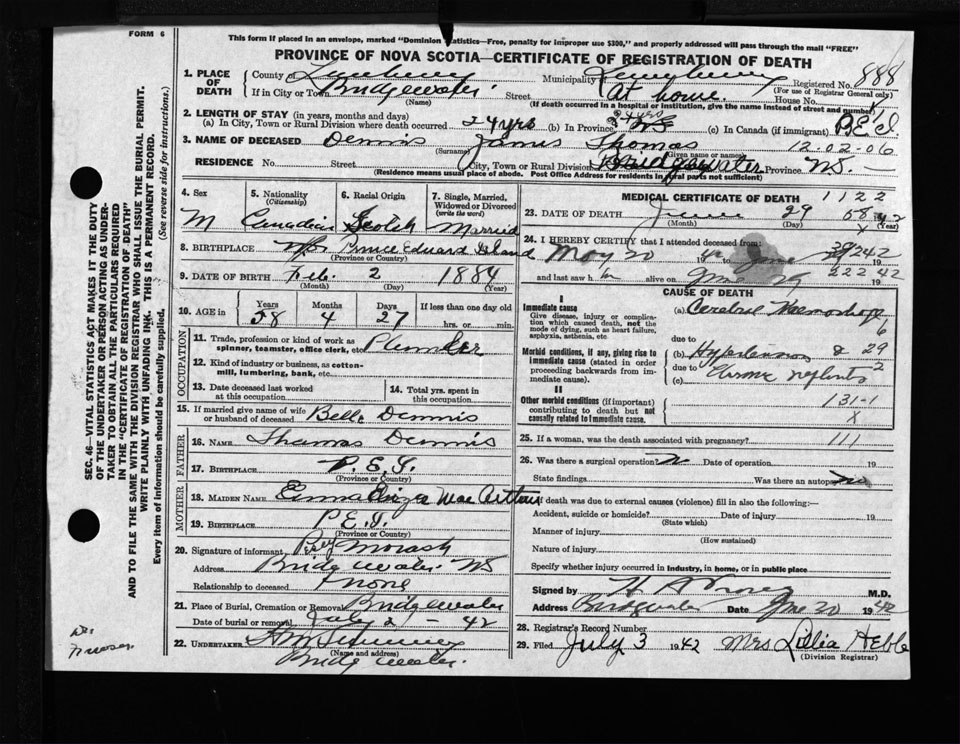 FORM 6
This form if placed in an envelope, marked "Dominion Statistics—Free, penalty for improper use $300," and properly addressed will pass through the mail "FREE"
PROVINCE OF NOVA SCOTIA—CERTIFICATE OF REGISTRATION OF DEATH
1. PLACE OF DEATH County of Lunenburg Municipality Lunenburg Registered No. 888
(For use of Registrar General only)
If in City or Town Bridgewater Street At home. House No.
(Name) (If death occurred in a hospital or institution, give the name instead of street and number)
2. LENGTH OF STAY (in years, months and days)
(a) In City, Town or Rural Division where death occurred 24 yrs (b) In Province 24 yrs (c) In Canada (if immigrant) P.E.I.
3. NAME OF DECEASED Dennis James Thomas 12-02-06
(Surname) (Given name or names)
RESIDENCE No. Street City, Town or Rural Division Bridgewater Province N.S.
(Residence means usual place of abode. Post Office Address for residents in rural parts not sufficient)
4. Sex M
5. Nationality (Citizenship) Canadian
6. Racial Origin Scotch
7. Single, Married, Widowed or Divorced (write the word) Married
8. BIRTHPLACE Prince Edward Island
(Province or County)
9. DATE OF BIRTH Feb. 2 1884
(Month) (Day) (Year)
10. AGE in Years 58 Months 4 Days 27 If less than one day old
hrs. or min.
OCCUPATION
11. Trade, profession or kind of work as spinner, teamster, office clerk, etc. Plumber
12. Kind of industry or business, as cotton-mill, lumbering, bank, etc.
13. Date deceased last worked at this occupation
14. Total yrs. spent in this occupation
15. If married give name of wife or husband of deceased Belle Dennis
FATHER
16. NAME Thomas Dennis
17. BIRTHPLACE P.E.I.
(Province or County)
MOTHER
18. MAIDEN NAME Emma Eliza Mac Arthur
19. BIRTHPLACE P.E.I.
(Province or County)
20. Signature of informant Percy Morash
Address Bridgewater NS
Relationship to deceased none
21. Place of Burial, Cremation or Removal Bridgewater
Date of burial or removal July 2 - 42
22. UNDERTAKER
(Name and address)
Bridgewater.
MEDICAL CERTIFICATE OF DEATH 1 1 2 2
23. DATE OF DEATH June 29
(Month) (Day) (Year)
24. I HEREBY CERTIFY that I attended deceased from:
May 20 to June 19
and last saw h im alive on June 29 19 42
CAUSE OF DEATH
I
Immediate cause
Give disease, injury or complication which caused death, not the mode of dying, such as heart failure, asphyxia, asthenia, etc.
(a) Cerebral Haemorrhage 6
due to
Morbid conditions, if any, giving rise to immediate cause (stated in order proceeding backwards from immediate cause).
(b) Hypertension 29
due to 2
(c) Chronic nephritis
II
Other morbid conditions (if important) contributing to death but not causally related to immediate cause.
131-1
X
25. If a woman, was the death associated with pregnancy? 111
26. Was there a surgical operation? Date of operation 19
State findings Was there an autopsy? no
death was due to external causes (violence) fill in also the following:
Accident, suicide or homicide? Date of injury 19
(State which)
Manner of injury
(How sustained)
Nature of injury
Specify whether injury occurred in industry, in home, or in public place
Signed by M.D.
Address Bridgewater Date June 20 1942
28. Registrar's Record Number
29. Filed July 3 1942 Mrs Lillia Hebb
(Division Registrar)
SEC. 46—VITAL STATISTICS ACT MAKES IT THE DUTY OF THE UNDERTAKER OR PERSON ACTING AS UNDERTAKER TO OBTAIN ALL THE PARTICULARS REQUIRED IN THE "CERTIFICATE OF REGISTRATION OF DEATH" AND TO FILE THE SAME WITH THE DIVISION REGISTRAR WHO SHALL ISSUE THE BURIAL PERMIT.
WRITE PLAINLY WITH UNFADING INK. THIS IS A PERMANENT RECORD.
Every item of information should be carefully supplied. (See reverse side for instructions.)